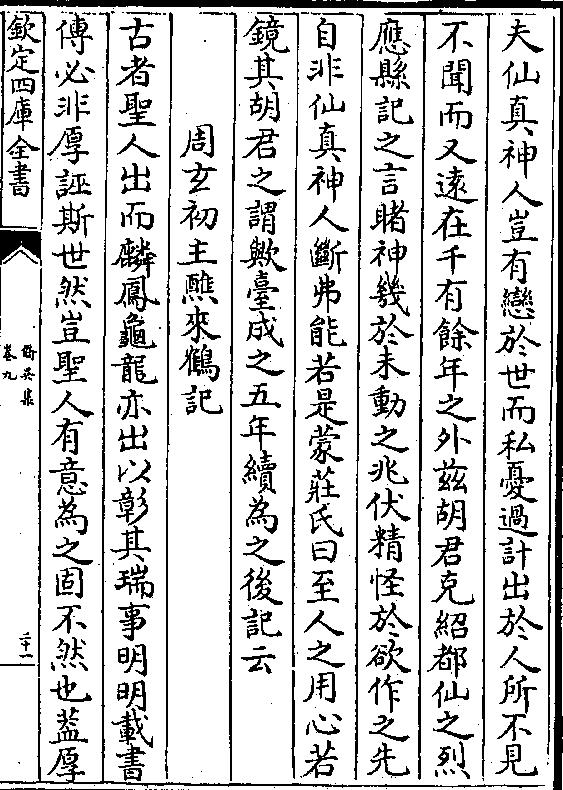 夫仙真神人豈有戀於世而私憂過計出於人所不見
不聞而又遠在千有餘年之外茲胡君克紹都仙之烈
應縣記之言睹神幾於未動之兆伏精怪於欲作之先
自非仙真神人斷弗能若是蒙莊氏曰至人之用心若
鏡其胡君之謂歟臺成之五年續為之後記云
周玄初主醮來鶴記
古者聖人出而麟鳳龜龍亦出以彰其瑞事明明載書
傳必非厚誣斯世然豈聖人有意為之固不然也葢厚
欽定四庫全書
卷九
三十一